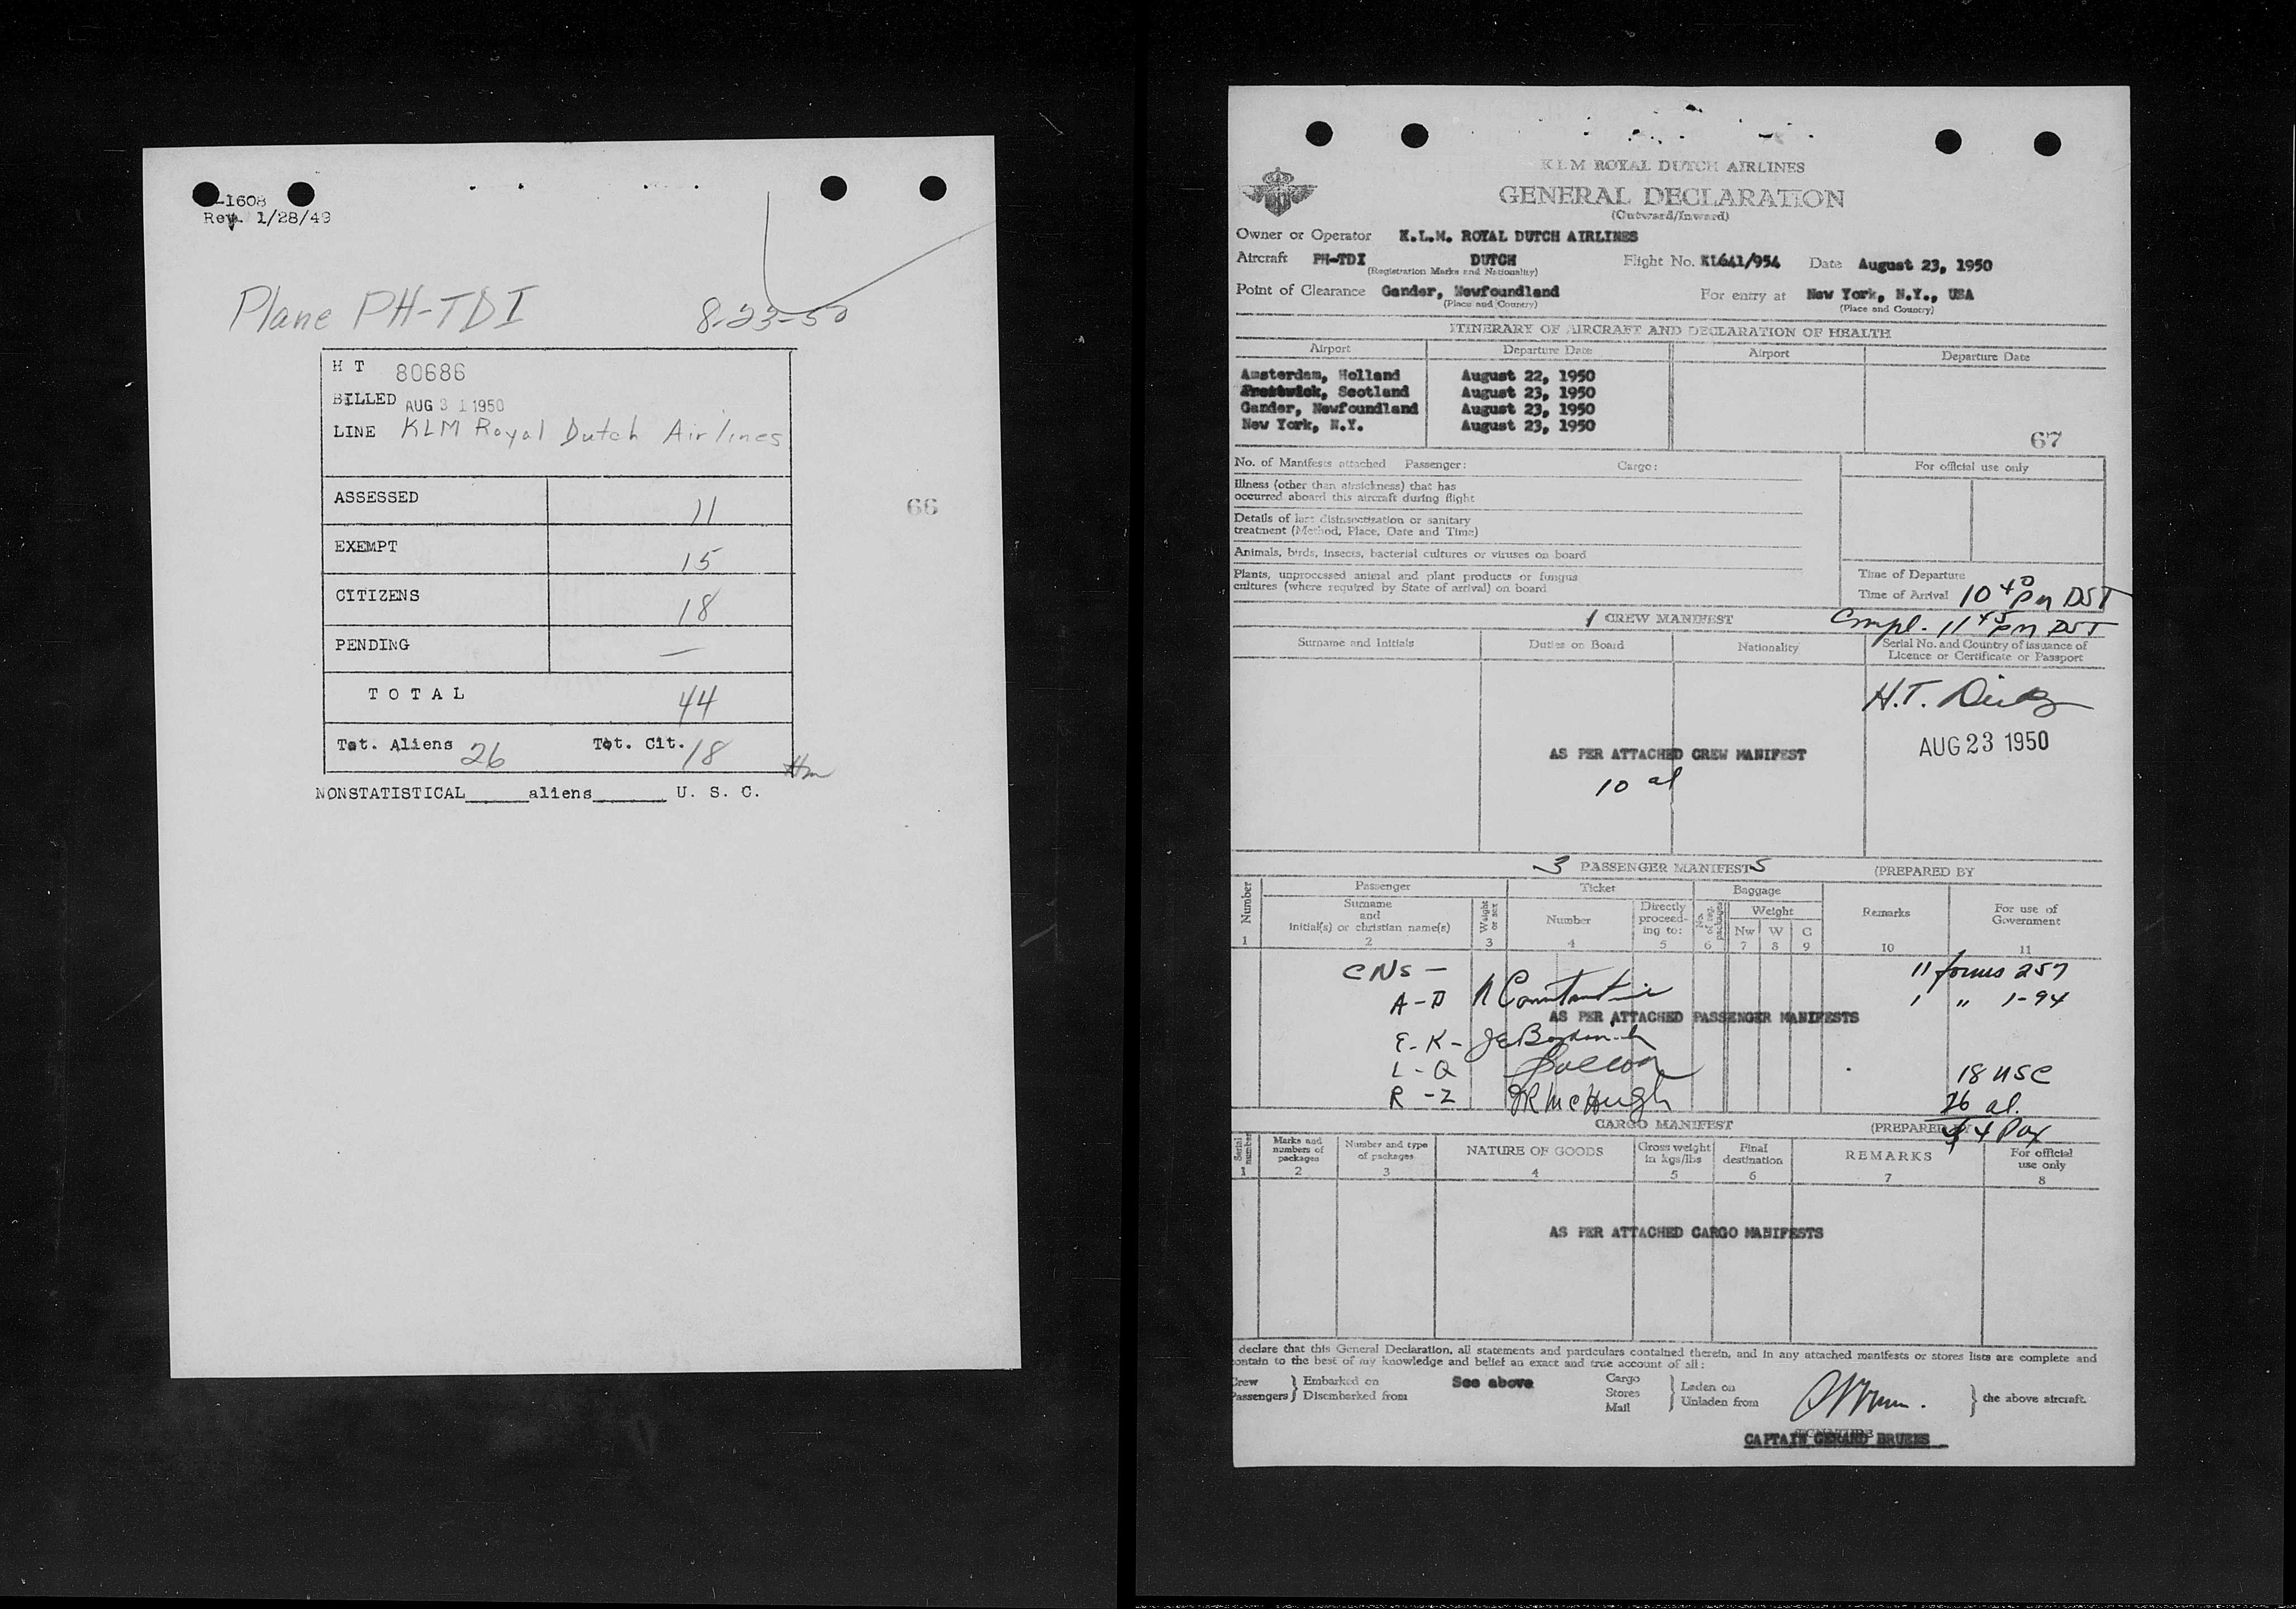 -1608
Rev. 1/28/49
Plane PH-TDI 8-23-50
H T 80686
BILLED AUG 31 1950
LINE KLM Royal Dutch Airlines
ASSESSED 11
EXEMPT 15
CITIZENS 18
PENDING —
TOTAL 44
Tot. Aliens 26 Tot. Cit. 18
NONSTATISTICAL____aliens____ U. S. C.
66
KLM ROYAL DUTCH AIRLINES
GENERAL DECLARATION
(Outward/Inward)
Owner or Operator K.L.M. ROYAL DUTCH AIRLINES
Aircraft PH-TDI DUTCH Flight No. KL641/954 Date August 23, 1950
(Registration Marks and Nationality)
Point of Clearance Gander, Newfoundland For entry at New York, N.Y., USA
(Place and Country) (Place and Country)
ITINERARY OF AIRCRAFT AND DECLARATION OF HEALTH
Airport Departure Date Airport Departure Date
Amsterdam, Holland August 22, 1950
Prestwick, Scotland August 23, 1950
Gander, Newfoundland August 23, 1950
New York, N.Y. August 23, 1950
67
No. of Manifests attached Passenger: Cargo: For official use only
Illness (other than airsickness) that has
occurred aboard this aircraft during flight
Details of last disinsectization or sanitary
treatment (Method, Place, Date and Time)
Animals, birds, insects, bacterial cultures or viruses on board
Plants, unprocessed animal and plant products or fungus
cultures (where required by State of arrival) on board
Time of Departure
Time of Arrival 10 40 pm DST
1 CREW MANIFEST Compl. 11 45 pm DST
Surname and Initials Duties on Board Nationality Serial No. and Country of issuance of
Licence or Certificate or Passport
H.T.
AUG 23 1950
AS PER ATTACHED CREW MANIFEST
10 al
3 PASSENGER MANIFESTS (PREPARED BY
Number Passenger Ticket Baggage
Surname
and
initial(s) or christian name(s)
Weight or sex Number Directly
proceed-
ing to:
No. of reg. packages Weight Remarks For use of
Government
Nw W C
1 2 3 4 5 6 7 8 9 10 11
CNS — 11 forms 257
A-D 1 " 1-94
AS PER ATTACHED PASSENGER MANIFESTS
E-K-
L-Q 18 USC
R-Z JR McHugh 26 al.
CARGO MANIFEST (PREPARED BY 44 Pax
Serial number Marks and
numbers of
packages
Number and type
of packages
NATURE OF GOODS Gross weight
in kgs/lbs
Final
destination
REMARKS For official
use only
1 2 3 4 5 6 7 8
AS PER ATTACHED CARGO MANIFESTS
declare that this General Declaration, all statements and particulars contained therein, and in any attached manifests or stores lists are complete and
contain to the best of my knowledge and belief an exact and true account of all:
Crew
Passengers } Embarked on
Disembarked from See above
Cargo
Stores
Mail } Laden on
Unladen from
} the above aircraft.
CAPTAIN GERARD BRUENS